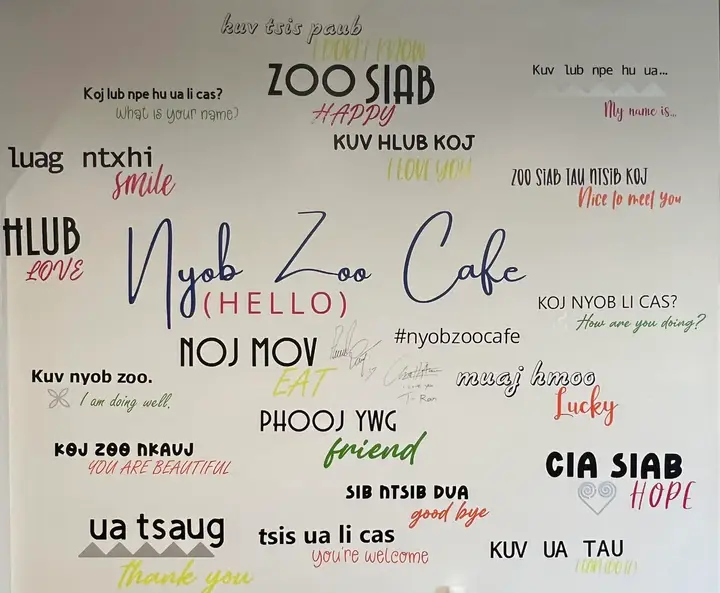 kuv tsis paub
I DON'T KNOW
ZOO SIAB
HAPPY
Koj lub npe hu ua li cas?
What is your name?
Kuv lub npe hu ua...
My name is...
KUV HLUB KOJ
I LOVE YOU
luag ntxhi
smile
ZOO SIAB TAU NTSIB KOJ
Nice to meet you
HLUB
LOVE
Nyob Zoo Cafe
(HELLO)
KOJ NYOB LI CAS?
How are you doing?
#nyobzoocafe
NOJ MOV
EAT
Kuv nyob zoo.
I am doing well.
muaj hmoo
Lucky
PHOOJ YWG
friend
KOJ ZOO NKAUJ
YOU ARE BEAUTIFUL
CIA SIAB
HOPE
SIB NTSIB DUA
good bye
ua tsaug
thank you
tsis ua li cas
you're welcome
KUV UA TAU
I CAN DO IT